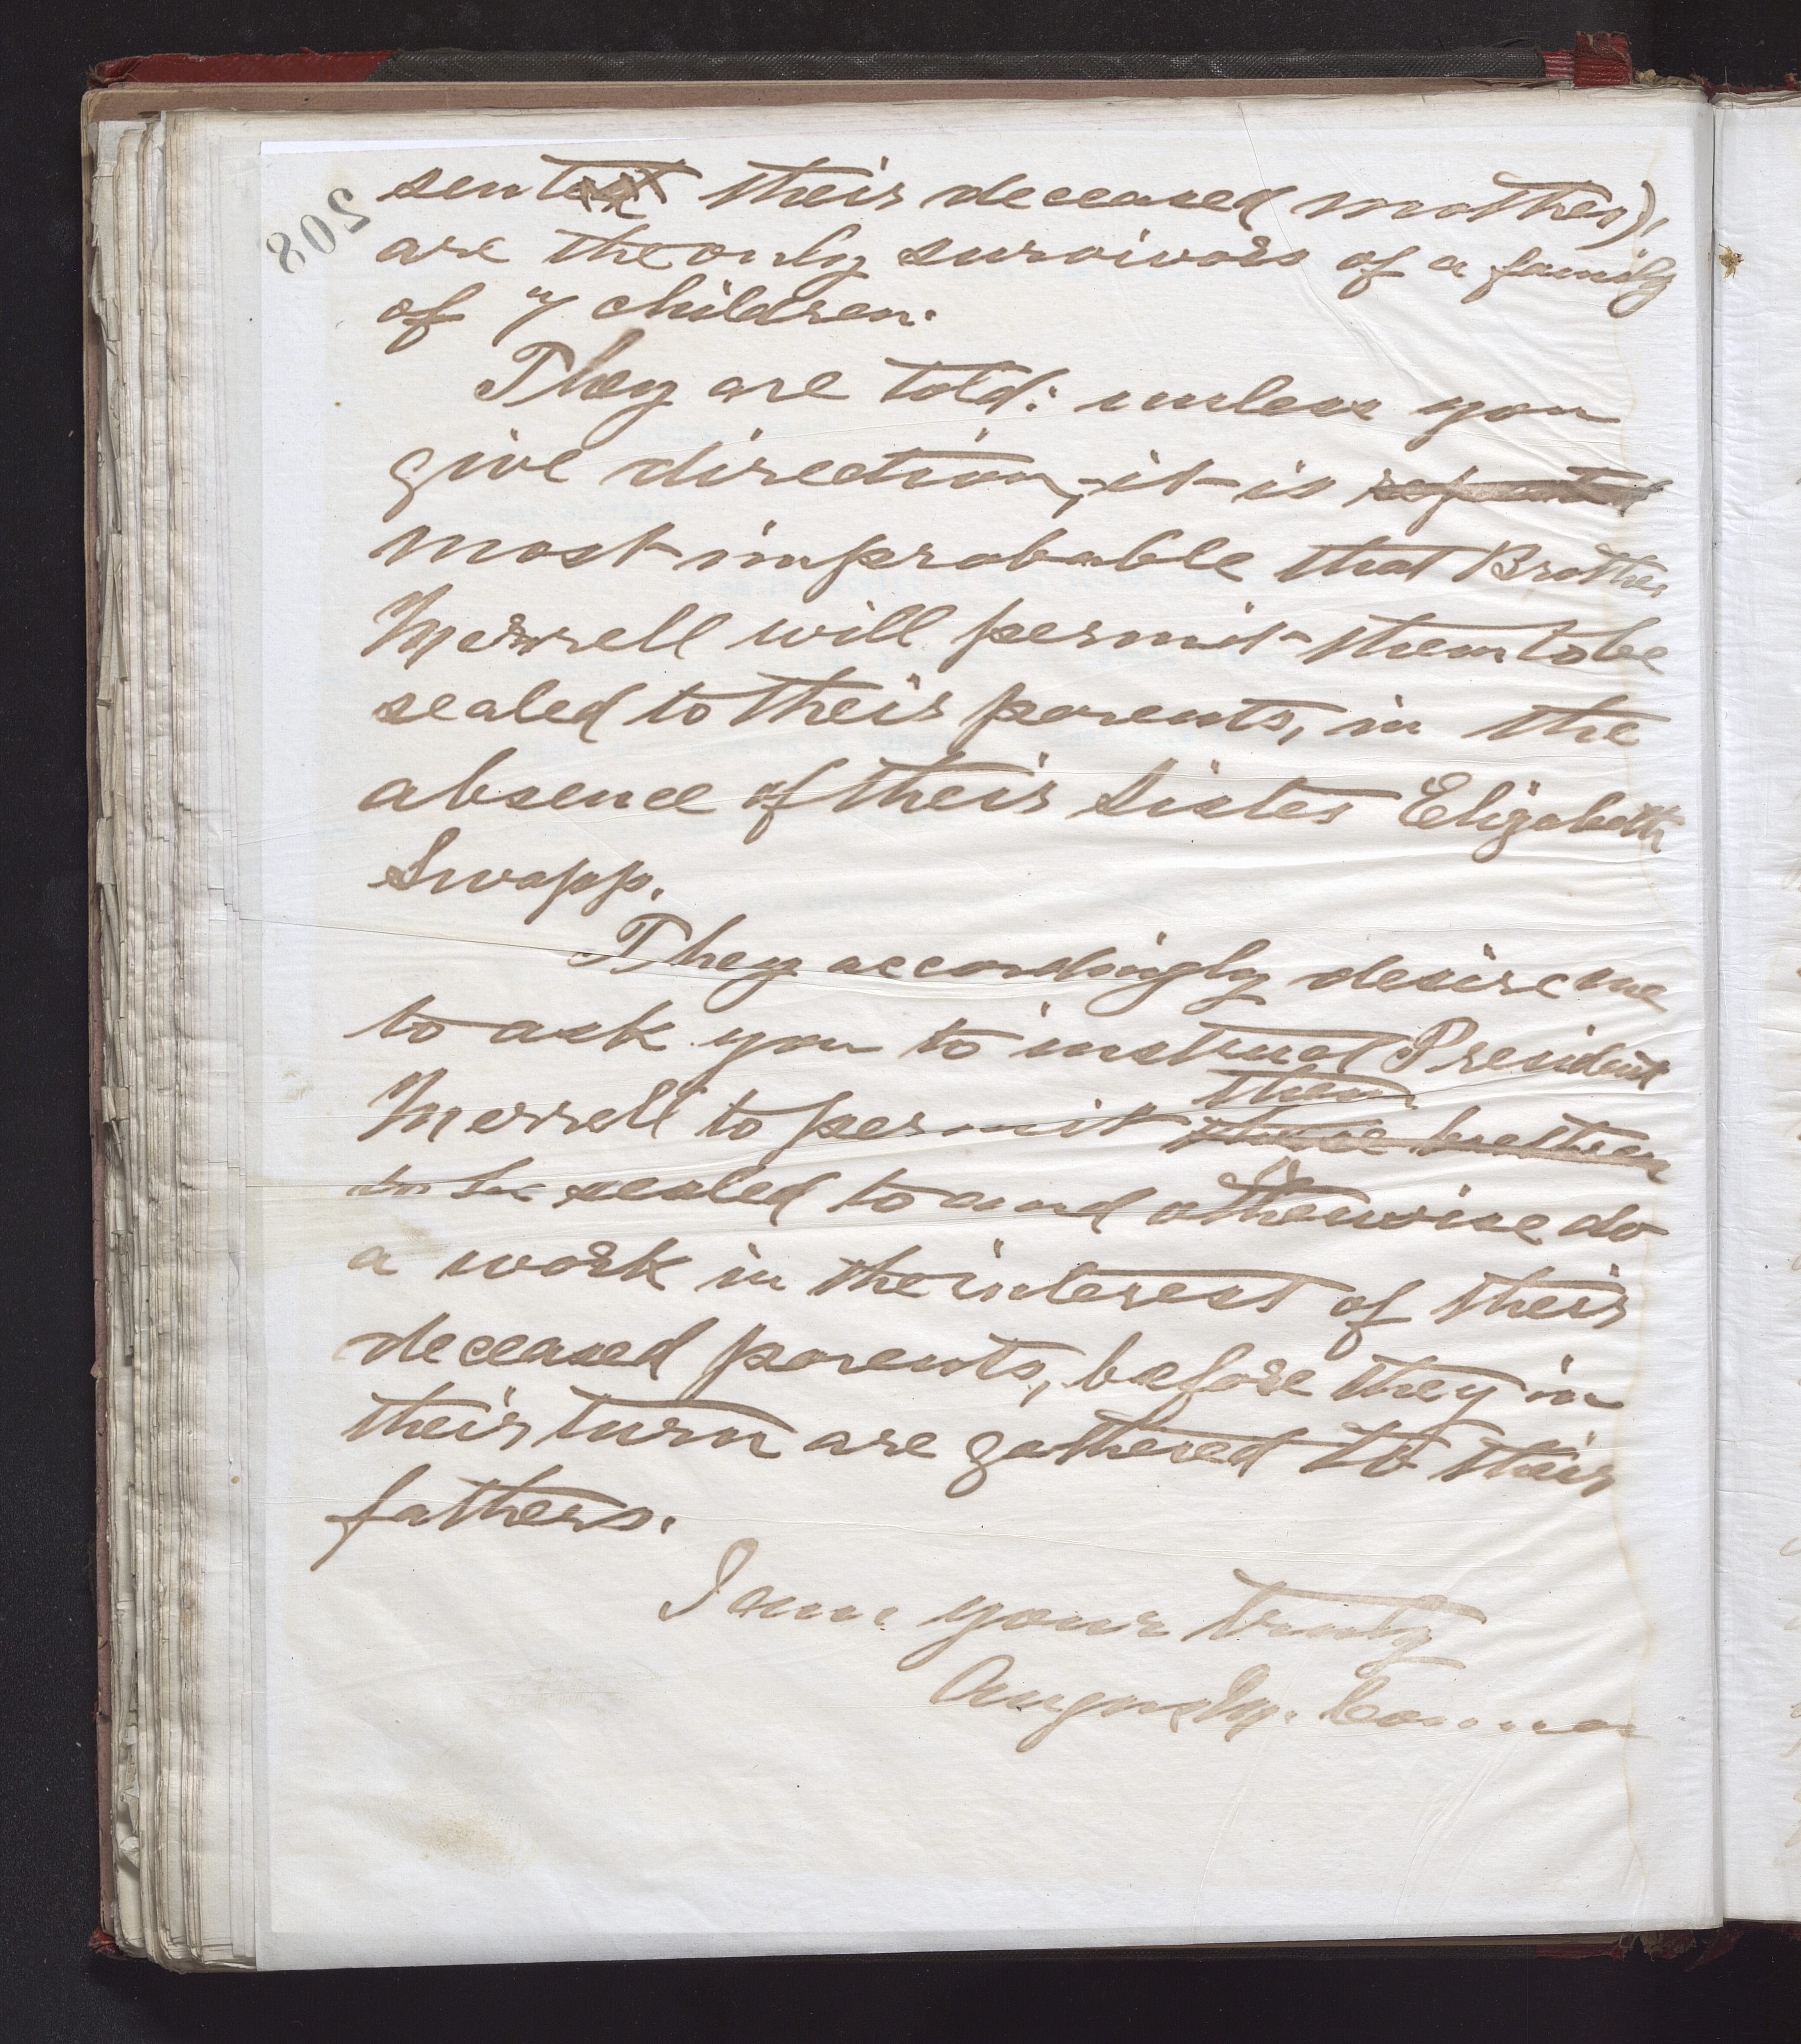 208
sent their deceased mother),
are the only survivors of a family
of 7 children.
They are told: unless you
give direction, it is
most improbable that Brother
Merrell will permit them to be
sealed to their parents, in the
absence of their sister Elizabeth
Swapp.
They accordingly desire me
to ask you to instruct President
them
Merrell to permit these brethren
to be sealed to and otherwise do
a work in the interest of their
deceased parents, before they in
their turn are gathered to their
fathers.
I am your truly
Angus M. Cannon